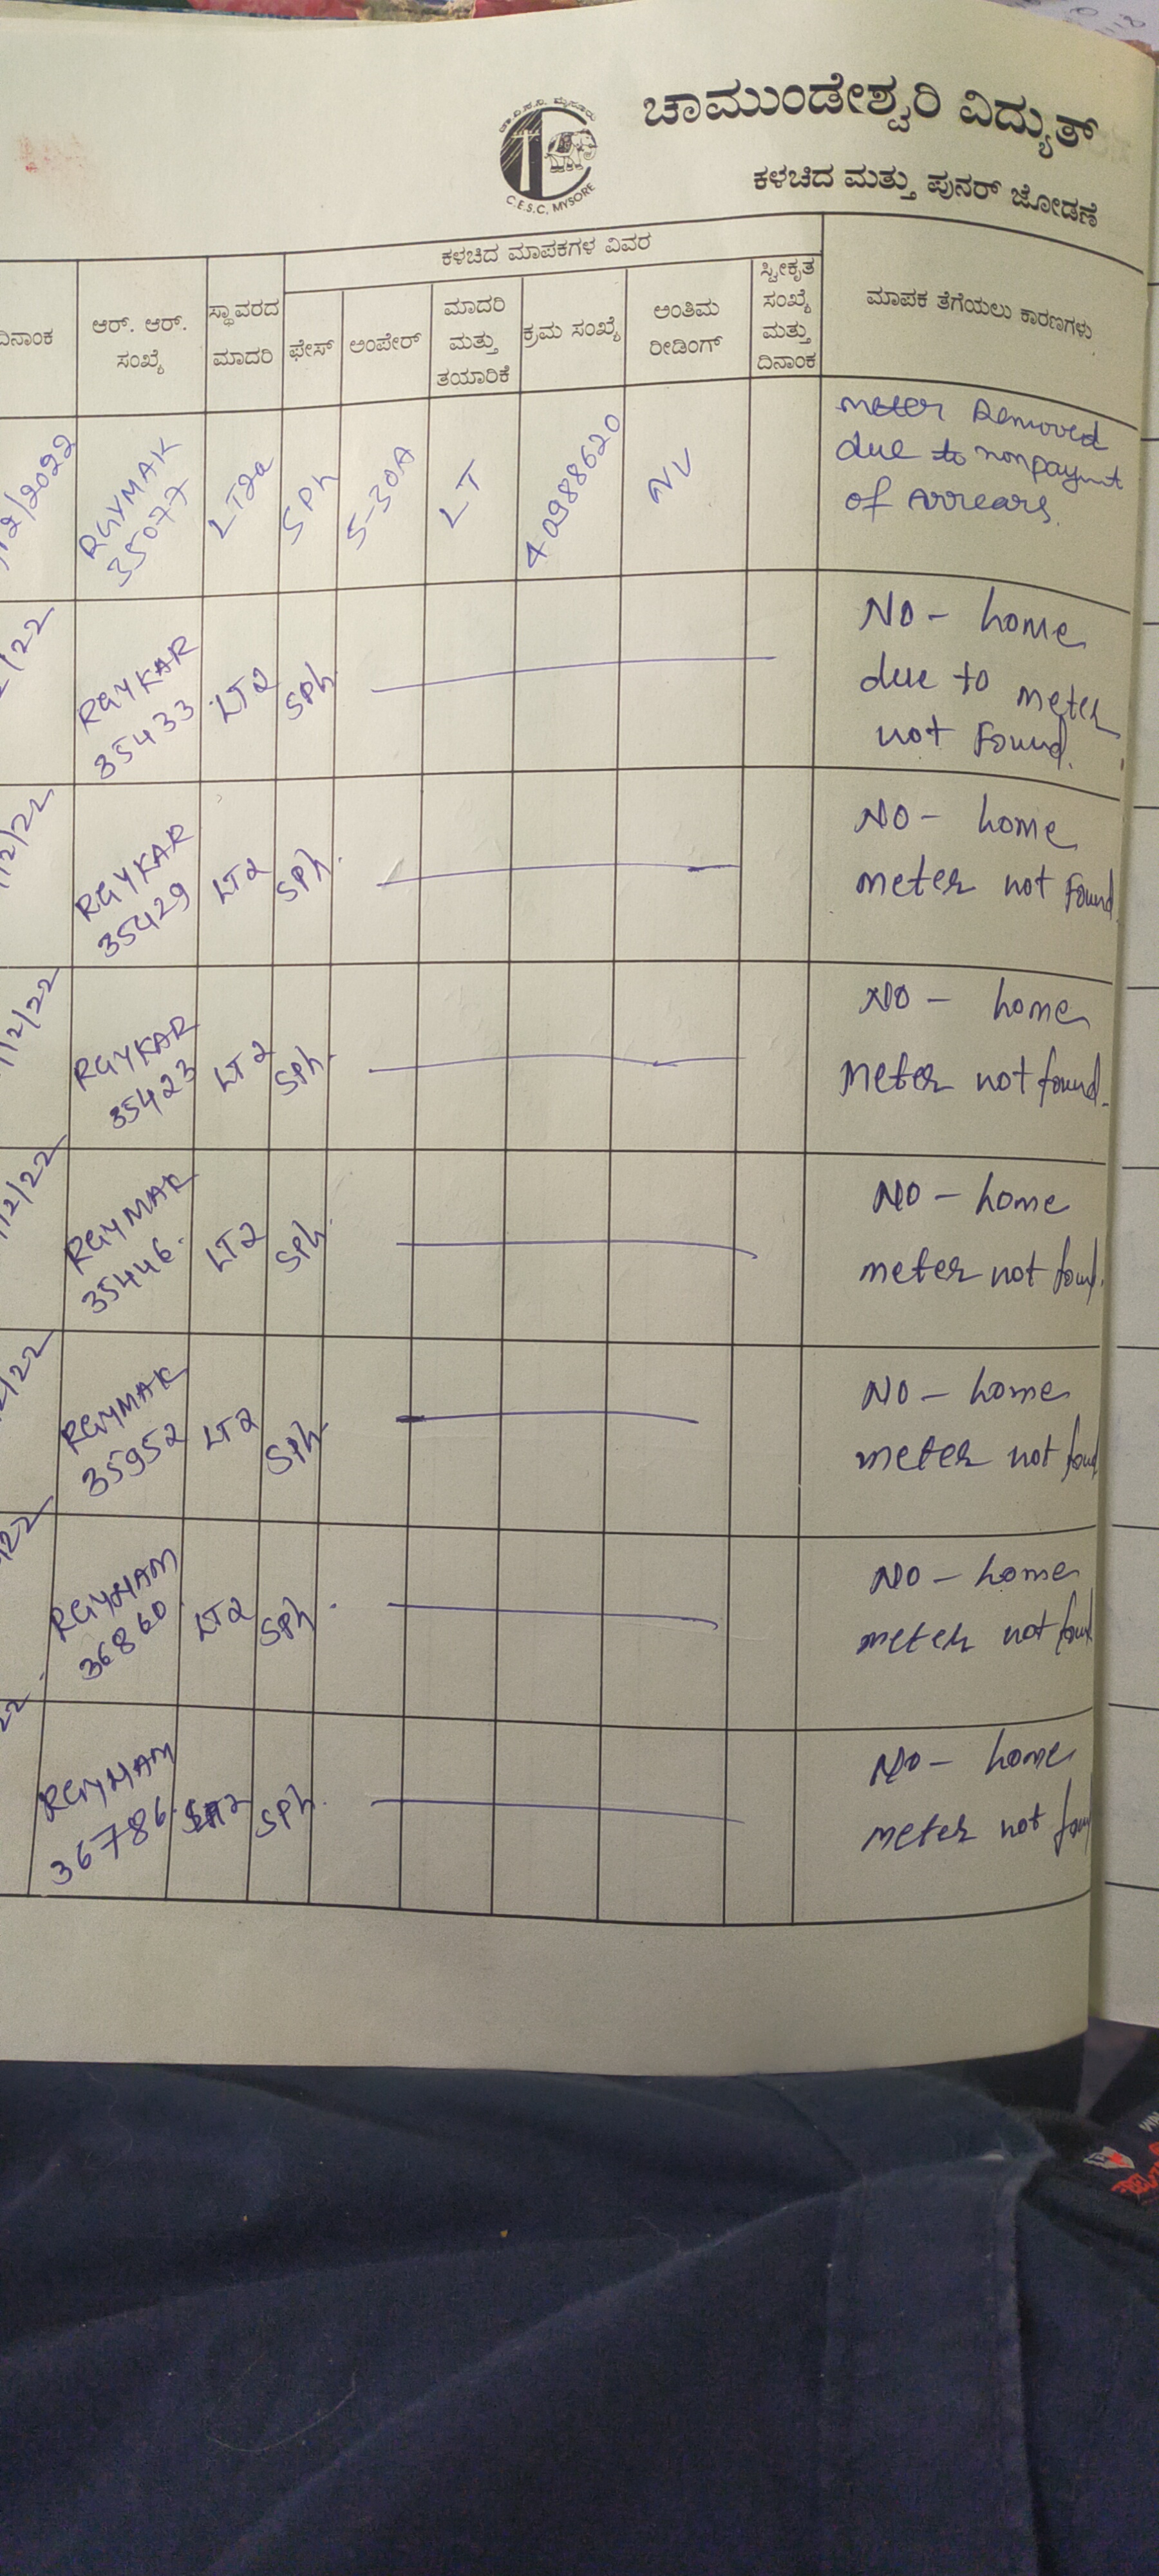 ಚಾಮುಂಡೇಶ್ವರಿ ವಿದ್ಯುತ್
ಕಳಚಿದ ಮತ್ತು ಪುನರ್ ಜೋಡಣೆ
C.E.S.C. MYSORE
ಕಳಚಿದ ಮಾಪಕಗಳ ವಿವರ
ದಿನಾಂಕ
ಆರ್. ಆರ್.
ಸಂಖ್ಯೆ
ಸ್ಥಾವರದ
ಮಾದರಿ
ಫೇಸ್
ಅಂಪೇರ್
ಮಾದರಿ
ಮತ್ತು
ತಯಾರಿಕೆ
ಕ್ರಮ ಸಂಖ್ಯೆ
ಅಂತಿಮ
ರೀಡಿಂಗ್
ಸ್ವೀಕೃತ
ಸಂಖ್ಯೆ
ಮತ್ತು
ದಿನಾಂಕ
ಮಾಪಕ ತೆಗೆಯಲು ಕಾರಣಗಳು
12/2022
RGYMAK
35077
LT2a
SPh
5-30A
LT
40988620
NV
meter Removed
due to nonpayment
of Arrears.
2/22
RGYKAR
35433
LT2
SPh
No - home
due to meter
not Found.
12/22
RGYKAR
35429
LT2
SPh.
No - home
meter not Found
12/22
RGYKAR
35423
LT2
SPh.
No - home
meter not found.
12/22
RGYMAK
35446.
LT2
SPh.
No - home
meter not found.
2/22
RGYMAK
35952
LT2
SPh.
No - home
meter not found
22
RGYHAM
36860
LT2
SPh.
No - home
meter not found
22
RGYHAM
36786
LT2
SPh.
No - home
meter not